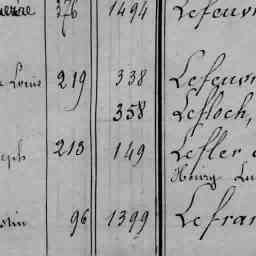 376 1494 Lefeuvr
Louis 219 338 Lefeuvr
358 Lefloch,
eph 213 149 Lefler
Henry Lu
96 1399 Lefran